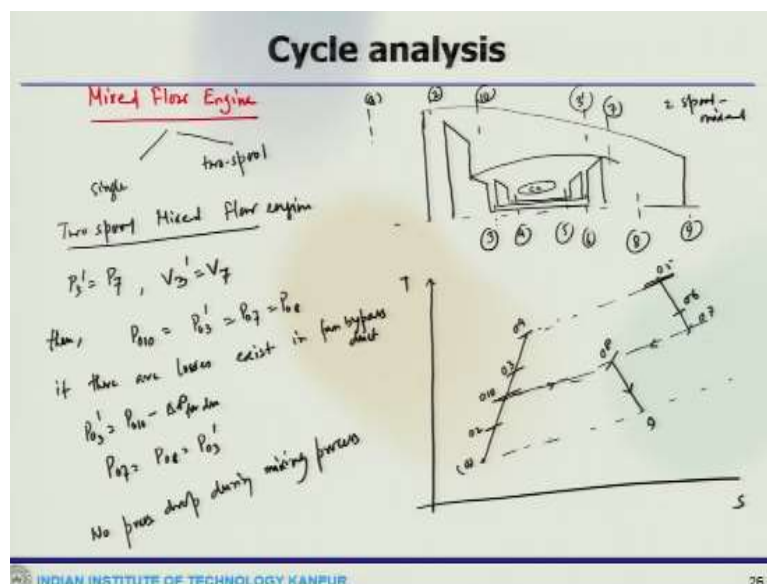 Cycle analysis
Mixed Flow Engine
single
two-spool
Two spool Mixed flow engine
P3' = P7 , V3' = V7
then, P010 = P03' = P07 = P08
if there are losses exist in fan bypass duct
P03' = P010 - ΔP
P07 = P08 = P03'
No press drop during mixing process
(a) (2) (10) (3') (7)
2 spool-mixed
CC
(3) (4) (5) (6) (8) (9)
T
05
04
06
03
07
08
010
02
(a)
9
S
INDIAN INSTITUTE OF TECHNOLOGY KANPUR
26